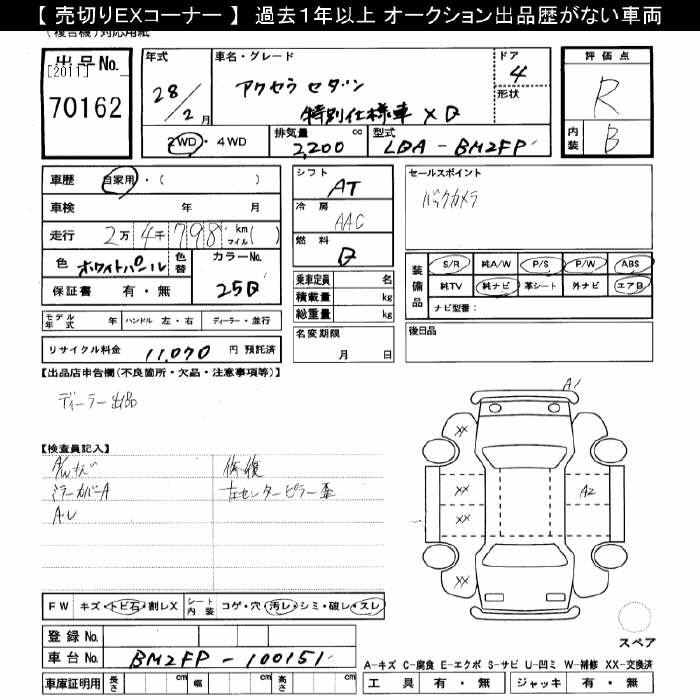 【 売切りEXコーナー 】 過去１年以上 オークション出品歴がない車両
(複合機)対応用紙
出品No.
[2011]
70162
年式
28/2月
車名・グレード
アクセラ セダン
特別仕様車 XD
ドア
4
形状
評価点
R
内装
B
2WD・4WD
排気量
2,200 cc
型式
LDA-BM2FP
車歴 自家用・( )
車検 年 月
走行 2万4千798 km マイル( )
色 ホワイトパール 色替
カラーNo.
25D
保証書 有・無
モデル年式 年 ハンドル 左・右 ディーラー・並行
リサイクル料金 11,070 円 預託済
シフト
AT
冷房
AAC
燃料
D
乗車定員 名
積載量 kg
総重量 kg
名変期限
月 日
セールスポイント
バックカメラ
装備品
S/R 純A/W P/S P/W ABS
純TV 純ナビ 革シート 外ナビ エアB
ナビ型番:
後日品
【出品店申告欄(不良箇所・欠品・注意事項等)】
ディーラー出品
【検査員記入】
A/Wキズ
ミラーカバーA
AU
修復
左センターピラー歪
A1
XX
XX
XX
XX
A2
スペア
FW キズ・トビ石・割レX
シート内装 コゲ・穴・汚レ・シミ・破レ・スレ
登録No.
車台No. BM2FP-100151
車庫証明用 長さ cm 幅 cm 高さ cm
A-キズ C-腐食 E-エクボ S-サビ U-凹ミ W-補修 XX-交換済
工具 有・無 ジャッキ 有・無